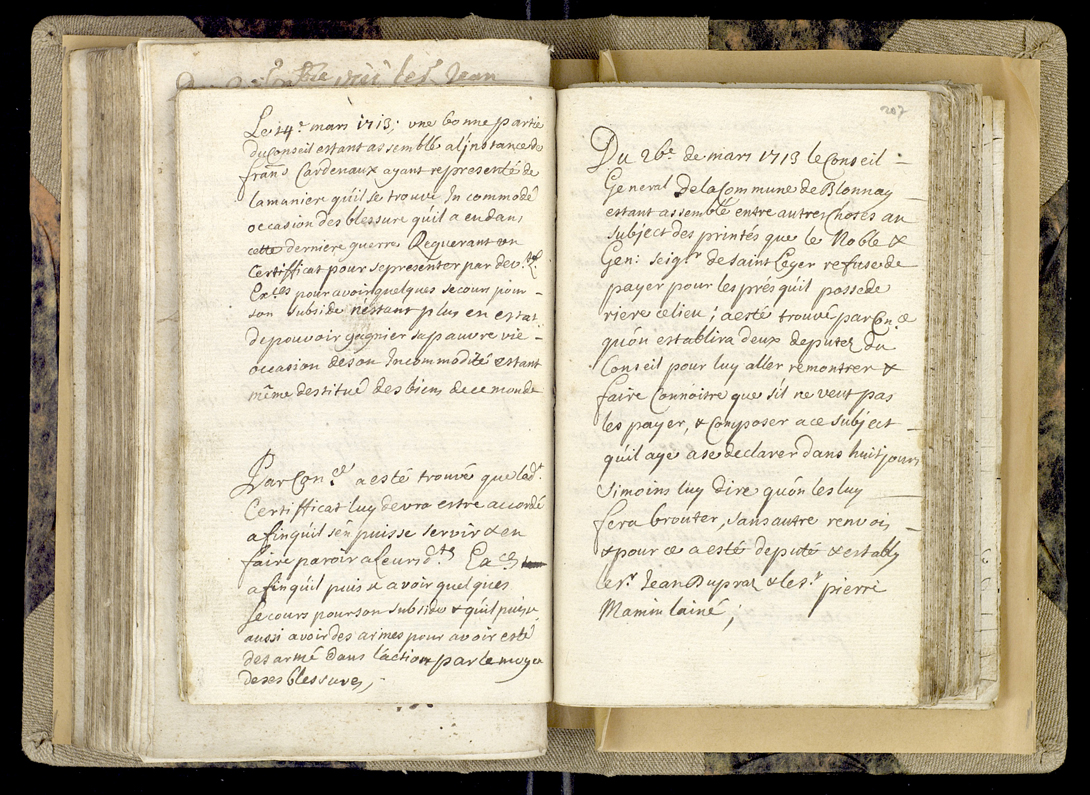 Le 14.e mars 1713; une bonne partie
du Conseil estant assemblé a l'jnstance de
frans Cardenaux ayant representé de
la maniere qu'il se trouve Incommodé
occasion des blessure quil a eu dans
cette derniere guerre Requerant un
Certifficat pour se presenter par dev.t L.
Ex.ces pour avoir quelques secours pour
son subside n'estant plus en estat
de pouvoir gagnier sa pauvre vie
occasion de son Incommodité estant
même destitué des biens de ce monde
Par Con.ce a esté trouvé que led.t
Certifficat luy devra estre accordé
afin quil s'en puisse servir & en
faire paroir a leurs d.tes Ex.ces
afin quil puis & avoir quelques
secours pour son subside & quil puisse
aussi avoir des armes pour avoir esté
desarmé dans l'action par le moyen
de ses blessures,
207
Du 26.e de mars 1713 le Conseil
General de la Commune de Blonnay
estant assemblé entre autres choses au
subject des printés que le Noble &
Gen: seig.r de saint Leger refuse de
payer pour les prés qu'il possede
riere ce lieu; a esté trouvé par Con.ce
qu'on establira deux deputez du
Conseil pour luy aller remontrer &
faire Connoitre que s'il ne veut pas
les payer, & Composer a ce subject
qu'il aye a se declarer dans huit jours
si moins luy dire qu'on les luy
fera brouter, sans autre renvois
& pour ce a esté deputé & estably
le s.r Jean Dupraz & le s.r pierre
Mamin lainé;